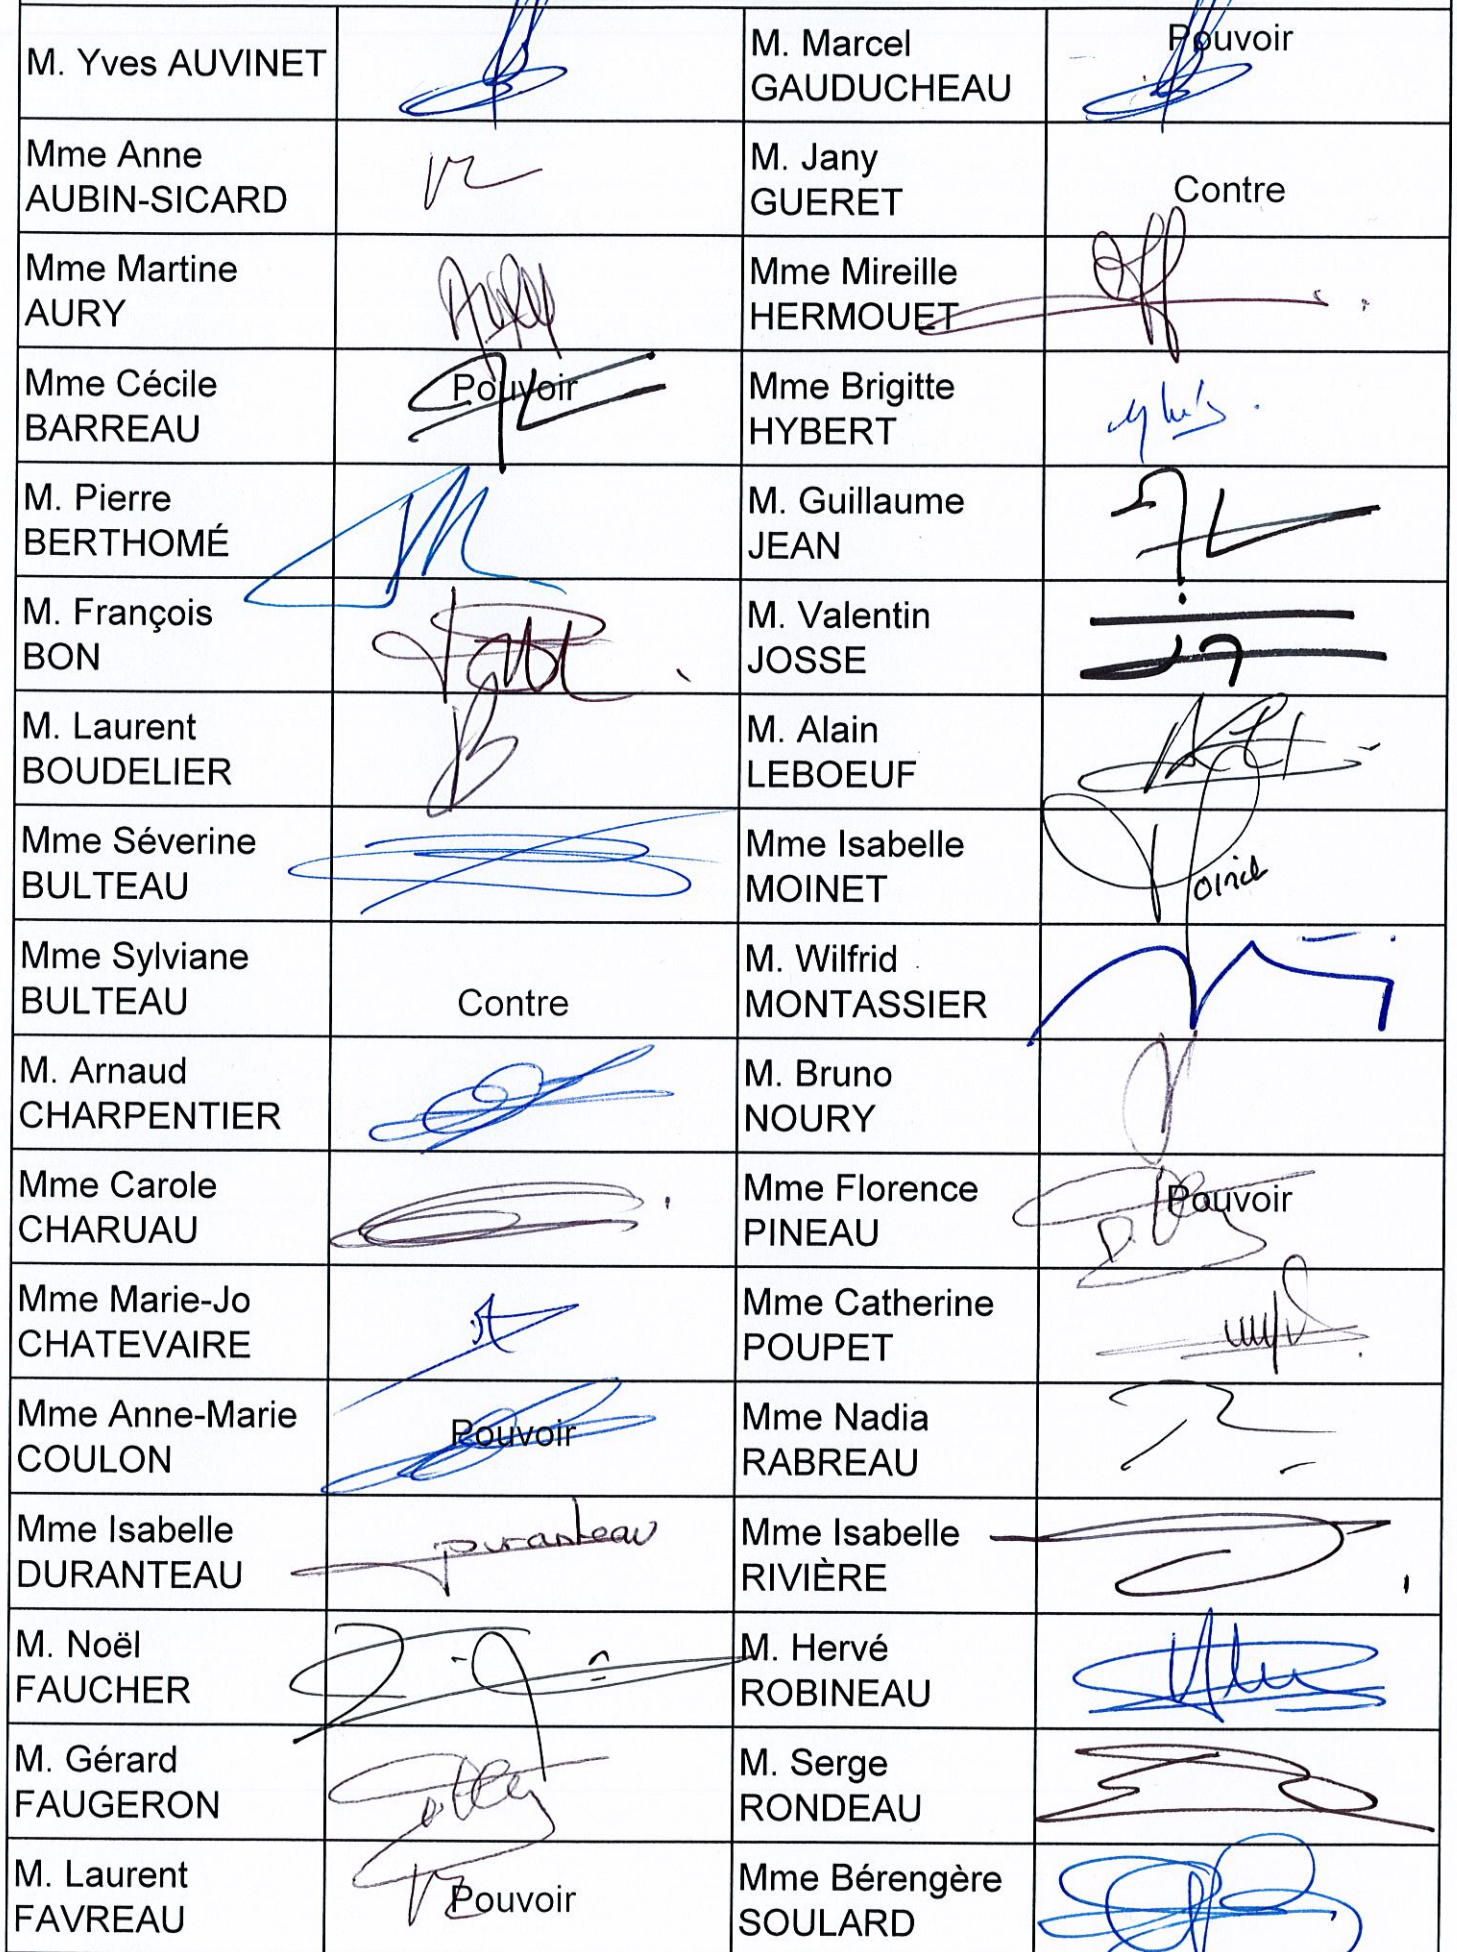 M. Yves AUVINET
M. Marcel
GAUDUCHEAU
Pouvoir
Mme Anne
AUBIN-SICARD
M. Jany
GUERET
Contre
Mme Martine
AURY
Mme Mireille
HERMOUET
Mme Cécile
BARREAU
Pouvoir
Mme Brigitte
HYBERT
M. Pierre
BERTHOMÉ
M. Guillaume
JEAN
M. François
BON
M. Valentin
JOSSE
M. Laurent
BOUDELIER
M. Alain
LEBOEUF
Mme Séverine
BULTEAU
Mme Isabelle
MOINET
Mme Sylviane
BULTEAU
Contre
M. Wilfrid
MONTASSIER
M. Arnaud
CHARPENTIER
M. Bruno
NOURY
Mme Carole
CHARUAU
Mme Florence
PINEAU
Pouvoir
Mme Marie-Jo
CHATEVAIRE
Mme Catherine
POUPET
Mme Anne-Marie
COULON
Pouvoir
Mme Nadia
RABREAU
Mme Isabelle
DURANTEAU
Duranteau
Mme Isabelle
RIVIÈRE
M. Noël
FAUCHER
M. Hervé
ROBINEAU
M. Gérard
FAUGERON
M. Serge
RONDEAU
M. Laurent
FAVREAU
Pouvoir
Mme Bérengère
SOULARD